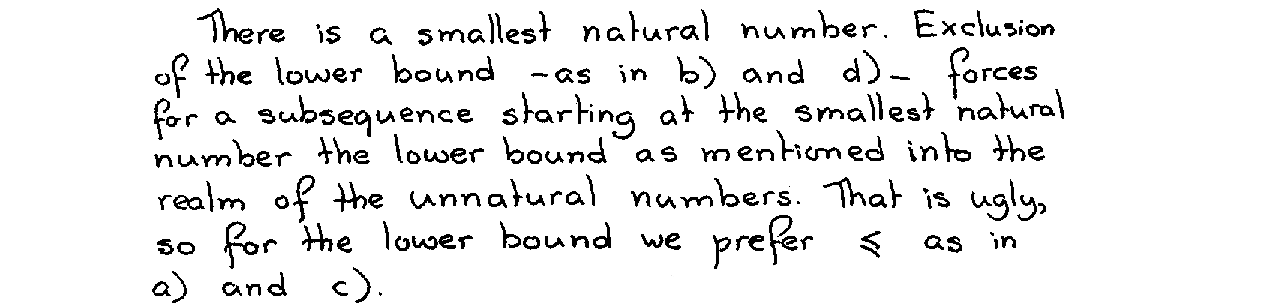 There is a smallest natural number. Exclusion
of the lower bound -as in b) and d)- forces
for a subsequence starting at the smallest natural
number the lower bound as mentioned into the
realm of the unnatural numbers. That is ugly,
so for the lower bound we prefer ≤ as in
a) and c).